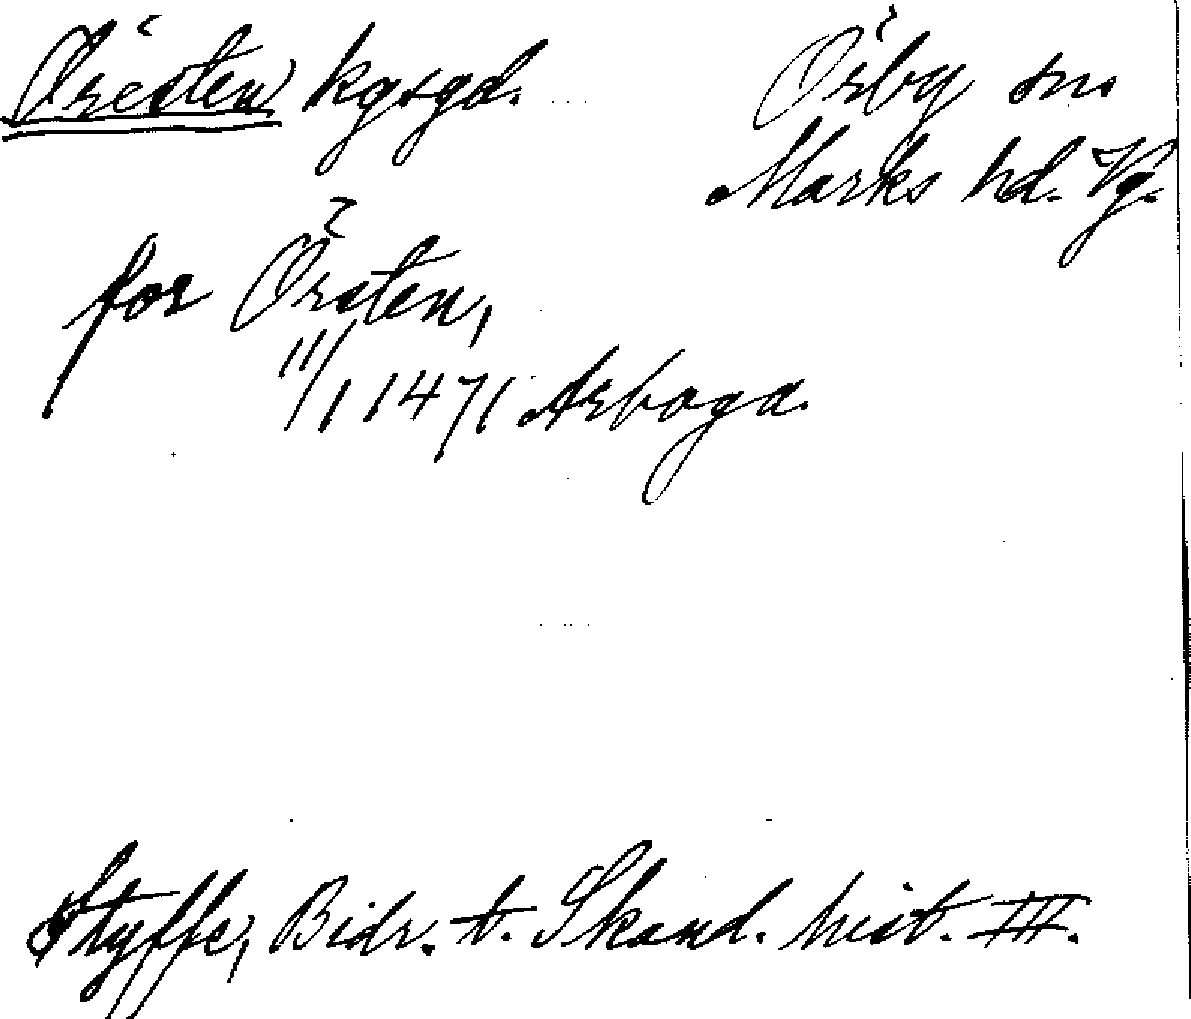 Öresten kgsgd. Örby sn.
Marks hd. Vg.
for Örsten,
11/1 1471 Arboga.
Styffe, Bidr. t. Skand. hist. III.